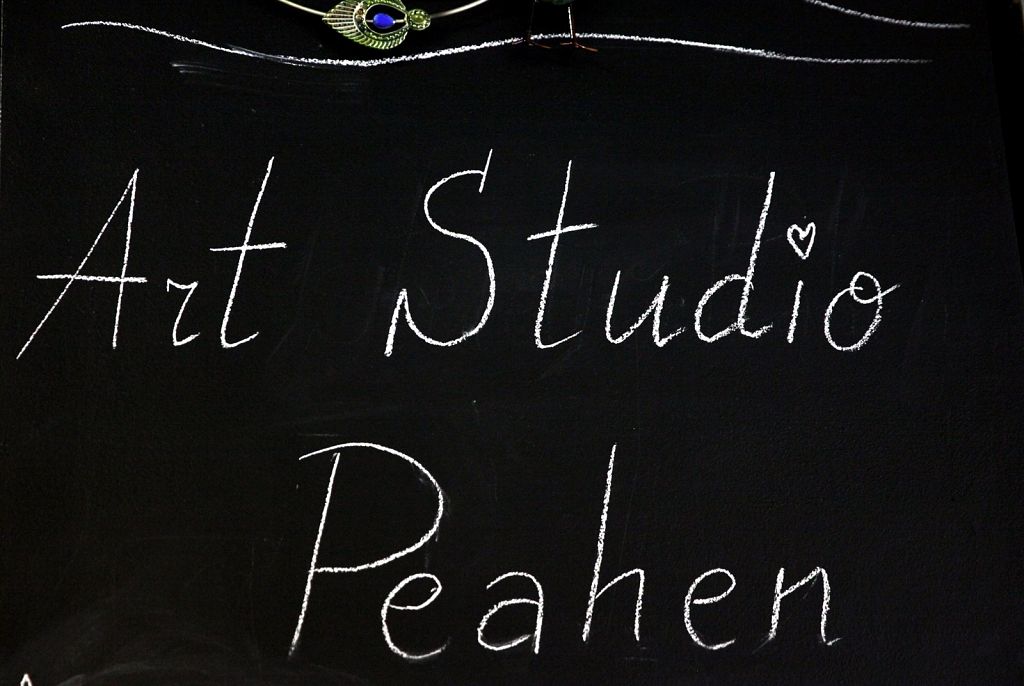 Art Studio
Peahen